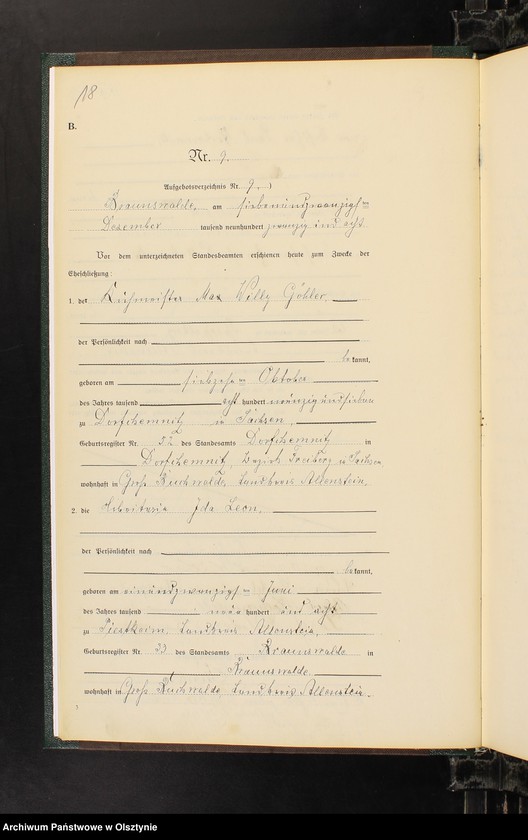 18
B.
Nr. 9.
Aufgebotsverzeichnis Nr. 9.)
Braunswalde, am siebenundzwanzigsten
Dezember tausend neunhundert zwanzig und acht
Vor dem unterzeichneten Standesbeamten erschienen heute zum Zwecke der
Eheschließung:
1. der Kuhmeister Max Willy Göhler,
der Persönlichkeit nach
bekannt,
geboren am siebzehnten Oktober
des Jahres tausend acht hundert neunzig und sieben
zu Dorfchemnitz in Sachsen,
Geburtsregister Nr. 52 des Standesamts Dorfchemnitz in
Dorfchemnitz, Bezirk Freiberg in Sachsen
wohnhaft in Groß Buchwalde, Landkreis Allenstein,
2. die Arbeiterin Ida Leon,
der Persönlichkeit nach
bekannt,
geboren am einundzwanzigsten Juni
des Jahres tausend neun hundert und acht
zu Piestkeim, Landkreis Allenstein,
Geburtsregister Nr. 33 des Standesamts Braunswalde in
Braunswalde,
wohnhaft in Groß Buchwalde, Landkreis Allenstein.
Archiwum Państwowe w Olsztynie